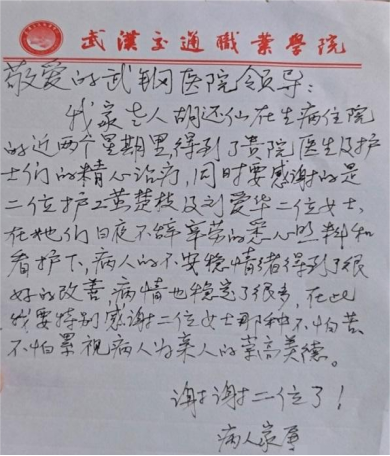 武漢交通職業學院
敬爱的武钢医院领导：
我家老人胡还仙在生病住院
的近两个星期里，得到了贵院医生及护
士们的精心治疗，同时要感谢的是
二位护工黄楚枝及刘爱华二位女士，
在她们日夜不辞辛劳的悉心照料和
看护下，病人的不安稳情绪得到了很
好的改善，病情也稳定了很多，在此
我要特别感谢二位女士那种不怕苦
不怕累视病人为亲人的崇高美德。
谢谢二位了！
病人家属